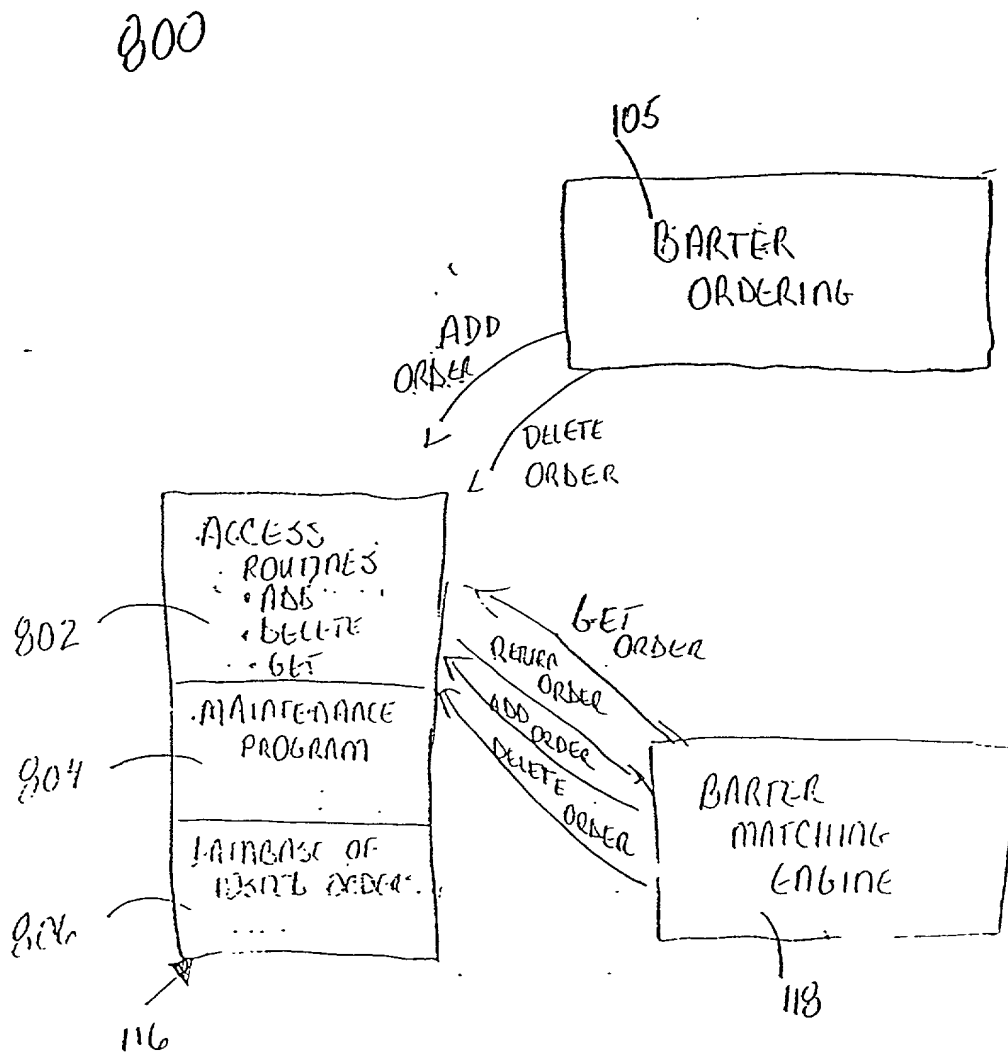 800
105
BARTER
ORDERING
ADD
ORDER
DELETE
ORDER
ACCESS
ROUTINES
• ADD
• DELETE
• GET
802
MAINTENANCE
PROGRAM
804
OF
116
GET
ORDER
RETURN
ORDER
ADD ORDER
DELETE
ORDER
BARTER
MATCHING
ENGINE
118